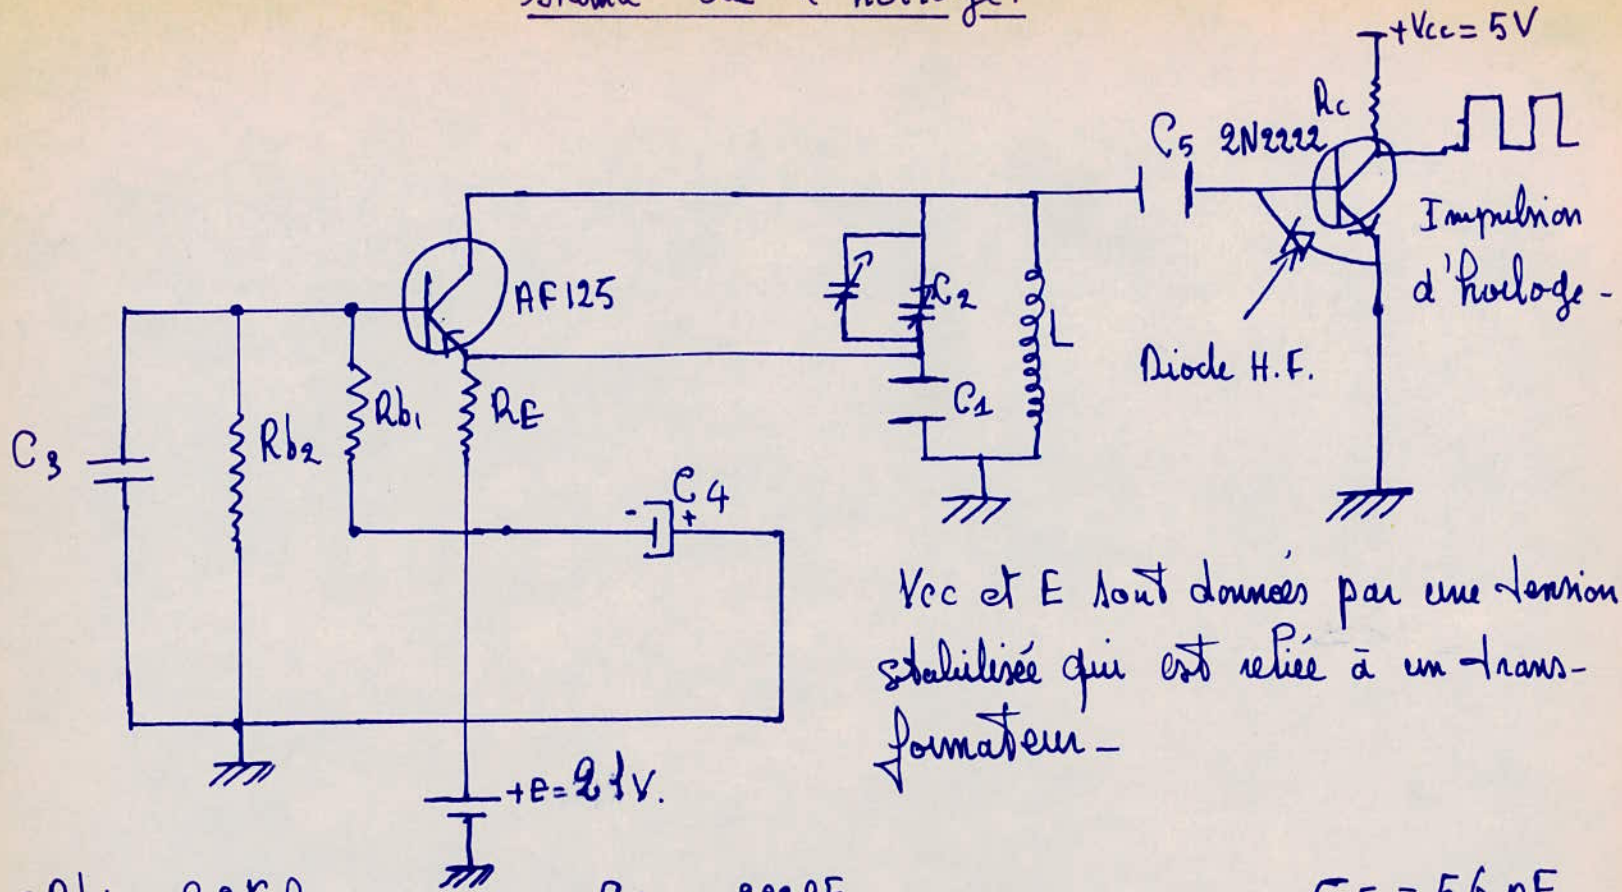 +Vcc = 5V
Rc
C5 2N2222
Impulsion
d'horloge -
AF125
C2
L
Diode H.F.
C1
C3
Rb2
Rb1
RE
C4
- +
Vcc et E sont données par une tension
stabilisée qui est reliée à un trans-
formateur -
+E = 21V.
C5 = 56 pF